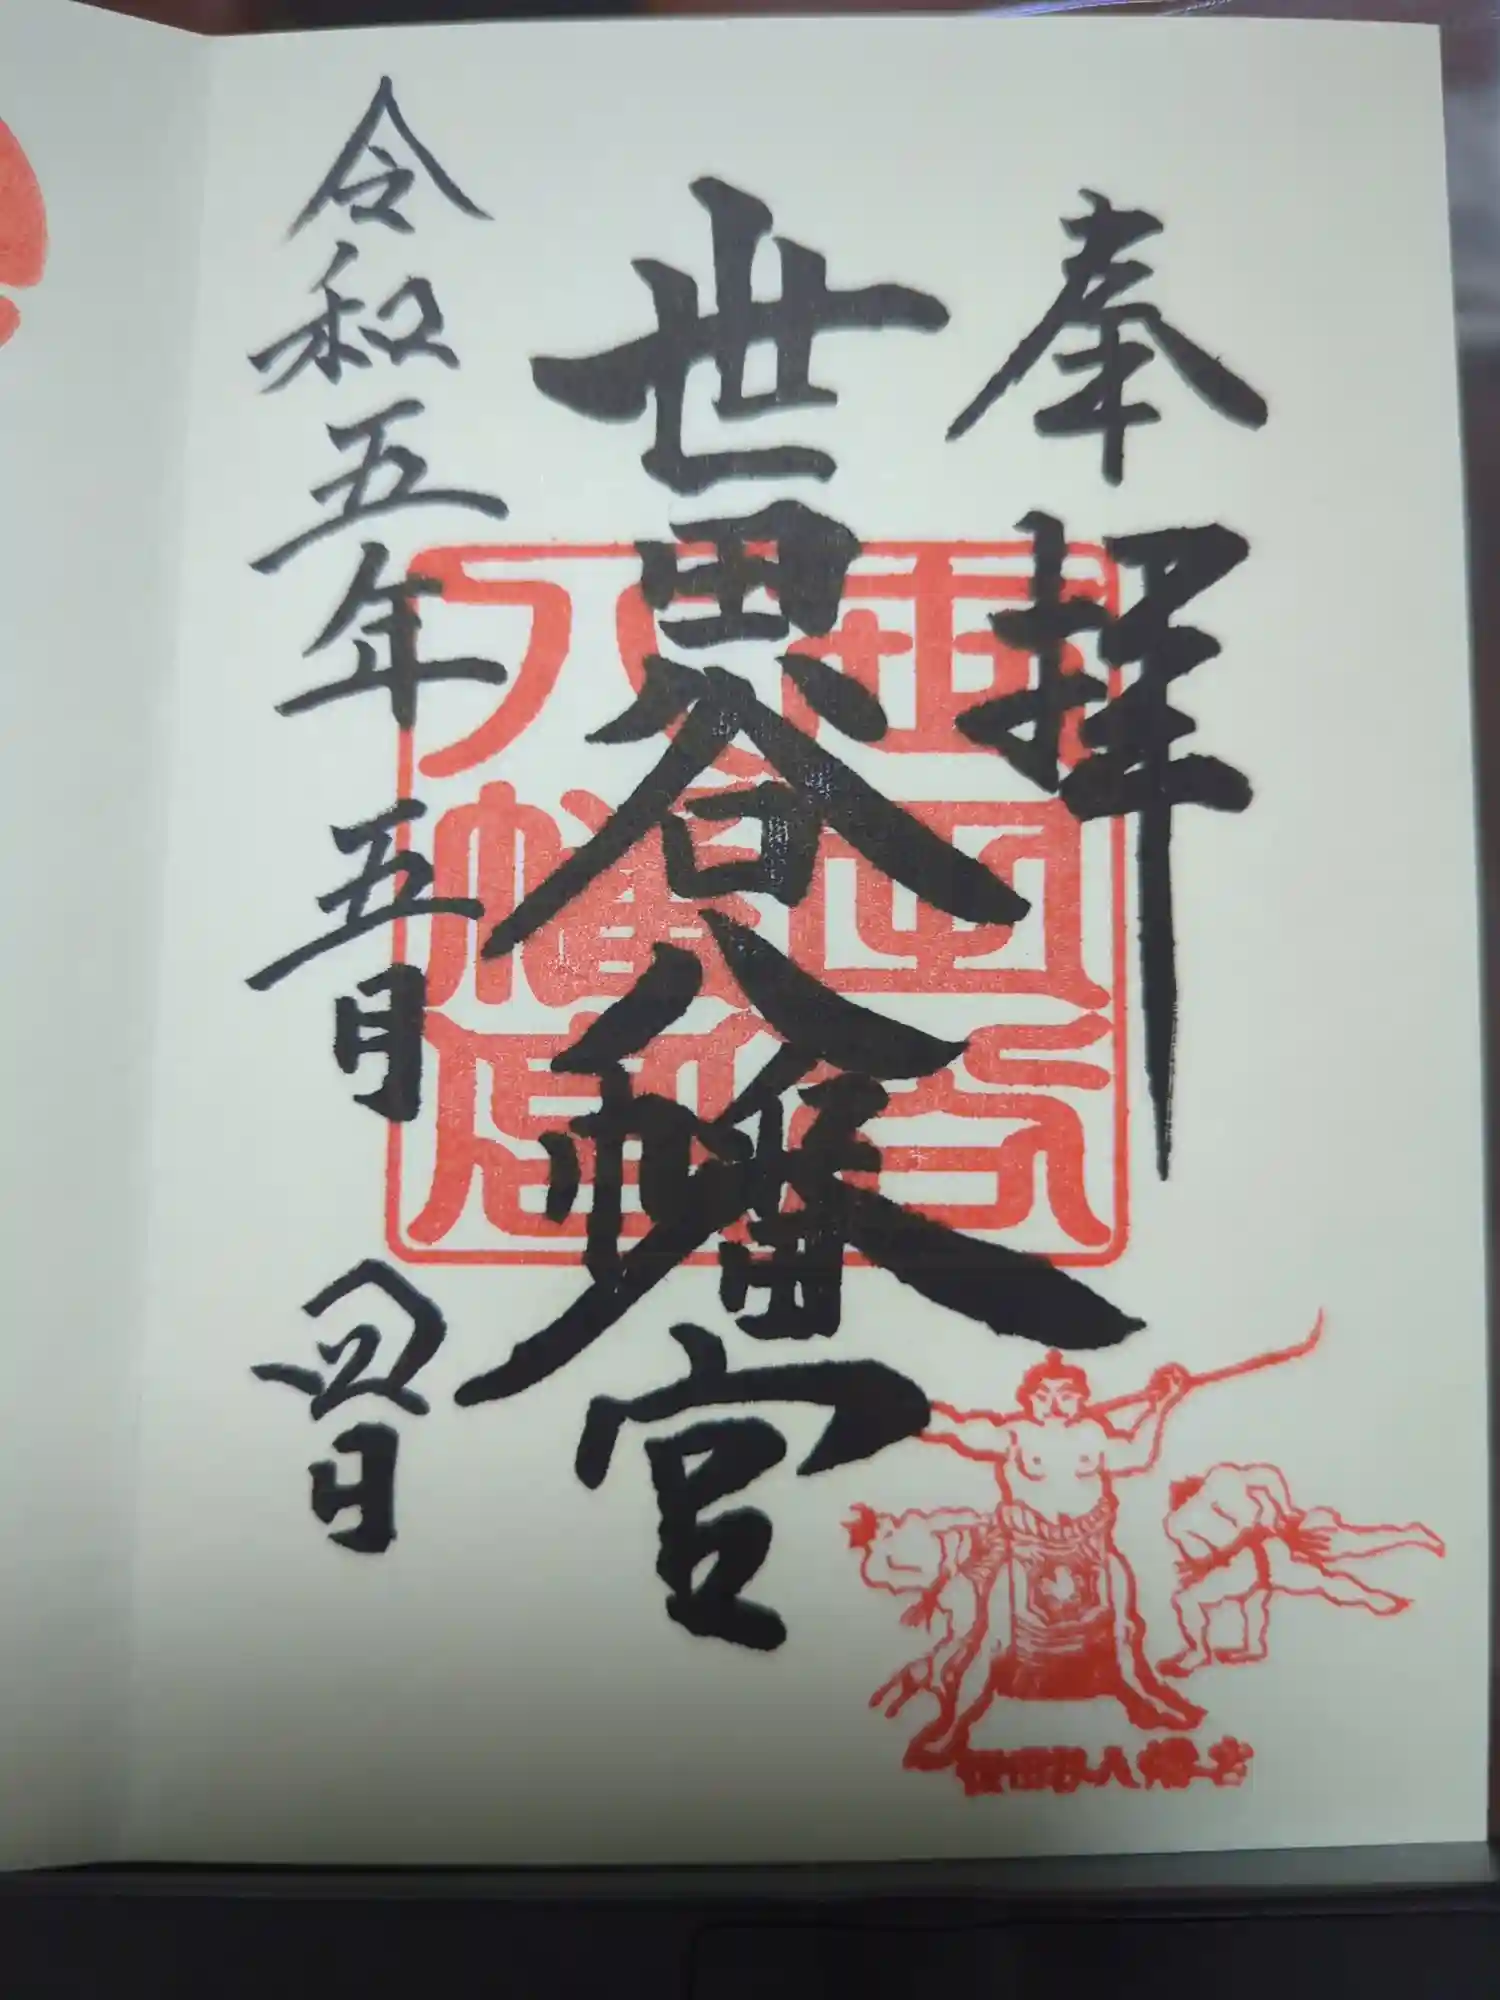 奉拝
世田谷八幡宮
令和五年五月四日
世田谷八幡宮
世田谷八幡宮